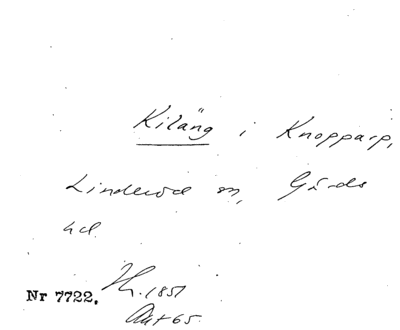 Kiläng i Knopparp,
Linderöd sn, Gärds
hd.
Nr 7722. Hr. 1851
Akt 65.